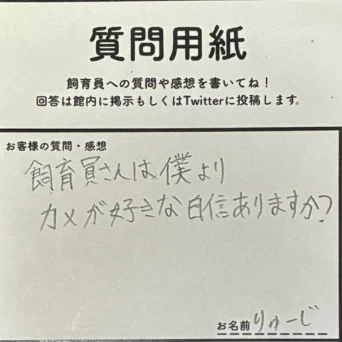 質問用紙
飼育員への質問や感想を書いてね！
回答は館内に掲示もしくはTwitterに投稿します。
お客様の質問・感想
飼育員さんは僕より
カメが好きな自信ありますか?
お名前 りゅーじ